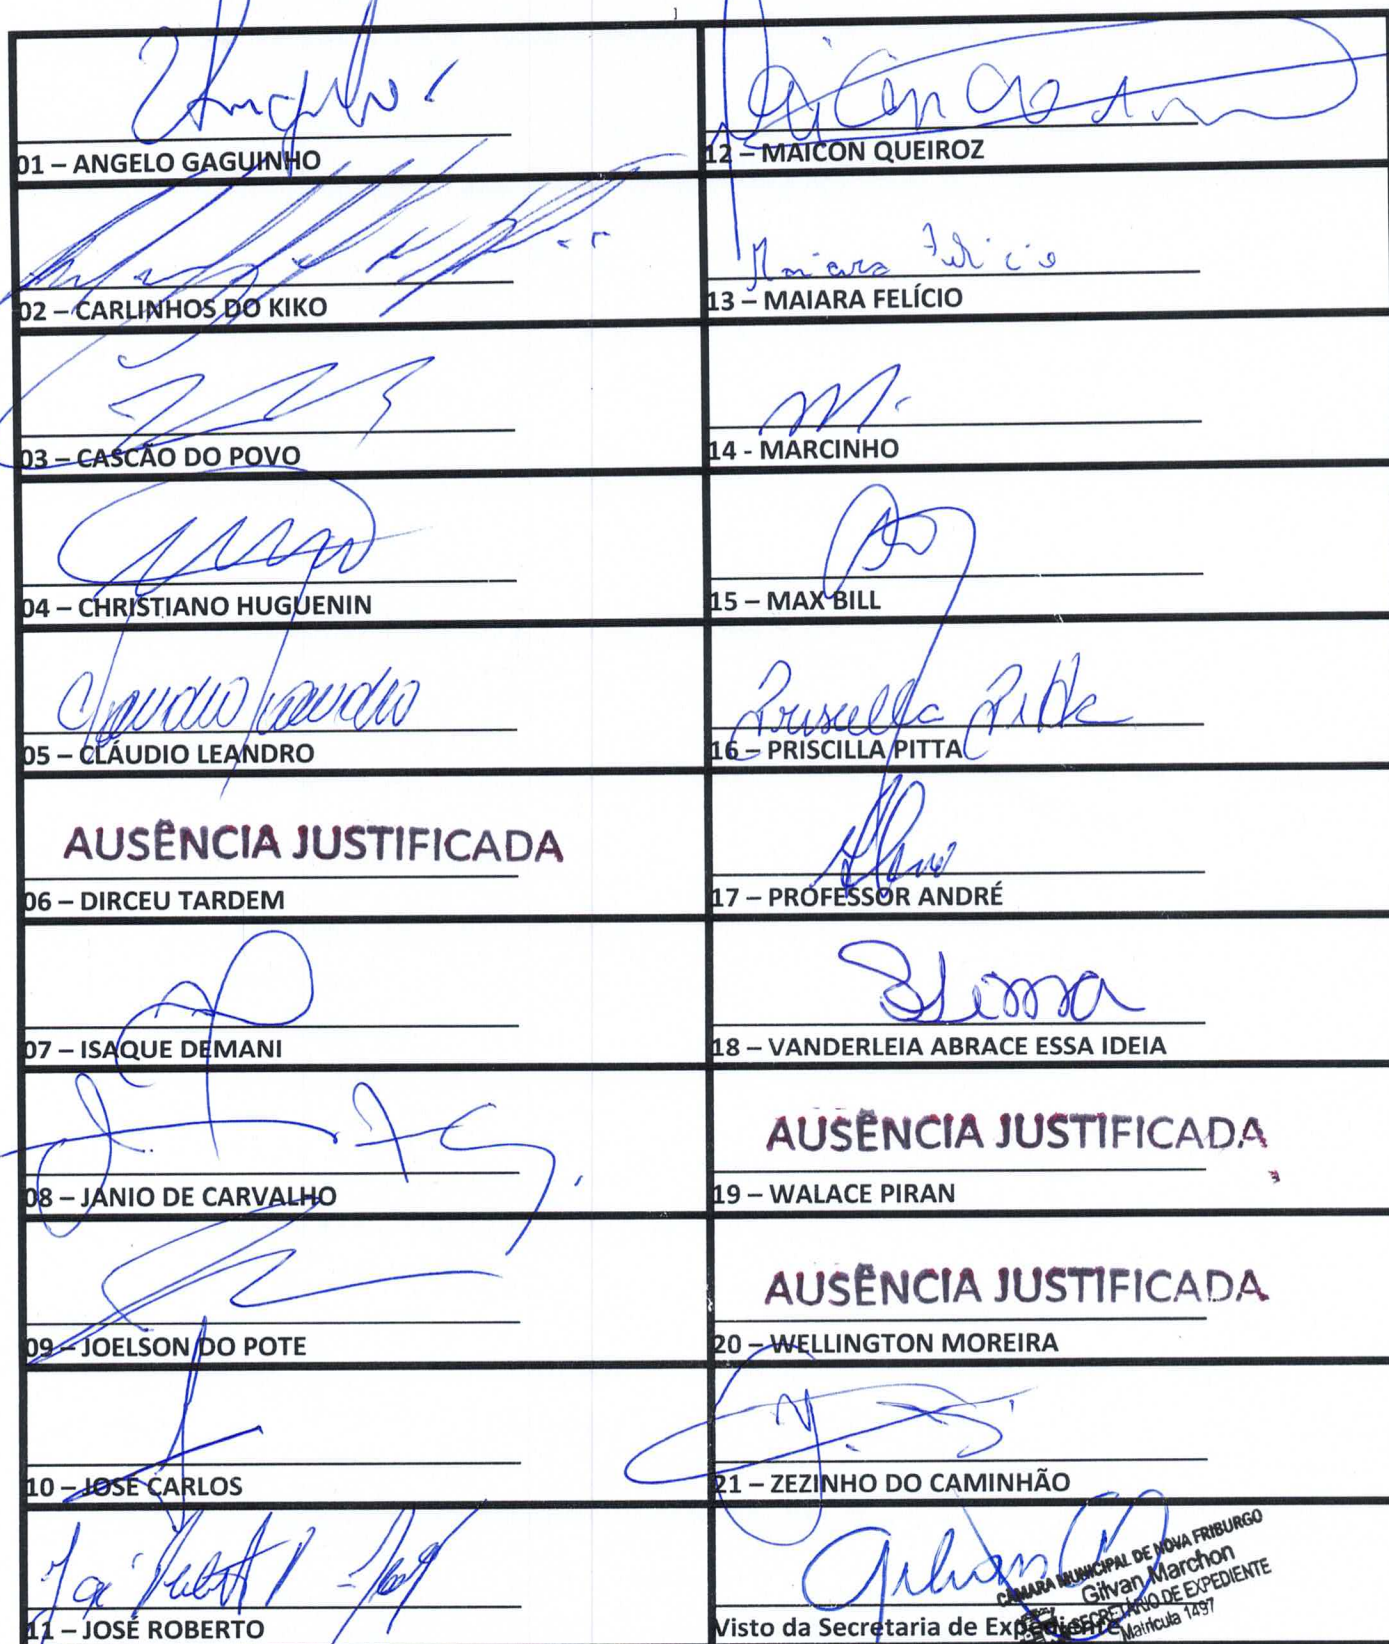 01 – ANGELO GAGUINHO
02 – CARLINHOS DO KIKO
03 – CASCÃO DO POVO
04 – CHRISTIANO HUGUENIN
Claudio Leandro
05 – CLÁUDIO LEANDRO
AUSÊNCIA JUSTIFICADA
06 – DIRCEU TARDEM
07 – ISAQUE DEMANI
08 – JANIO DE CARVALHO
09 – JOELSON DO POTE
10 – JOSÉ CARLOS
11 – JOSÉ ROBERTO
12 – MAICON QUEIROZ
Maiara Felicio
13 – MAIARA FELÍCIO
14 - MARCINHO
15 – MAX BILL
Priscilla Pitta
16 – PRISCILLA PITTA
17 – PROFESSOR ANDRÉ
18 – VANDERLEIA ABRACE ESSA IDEIA
AUSÊNCIA JUSTIFICADA
19 – WALACE PIRAN
AUSÊNCIA JUSTIFICADA
20 – WELLINGTON MOREIRA
21 – ZEZINHO DO CAMINHÃO
Gilvan
CÂMARA MUNICIPAL DE NOVA FRIBURGO
Gilvan Marchon
SECRETÁRIO DE EXPEDIENTE
Matrícula 1497
Visto da Secretaria de Expediente